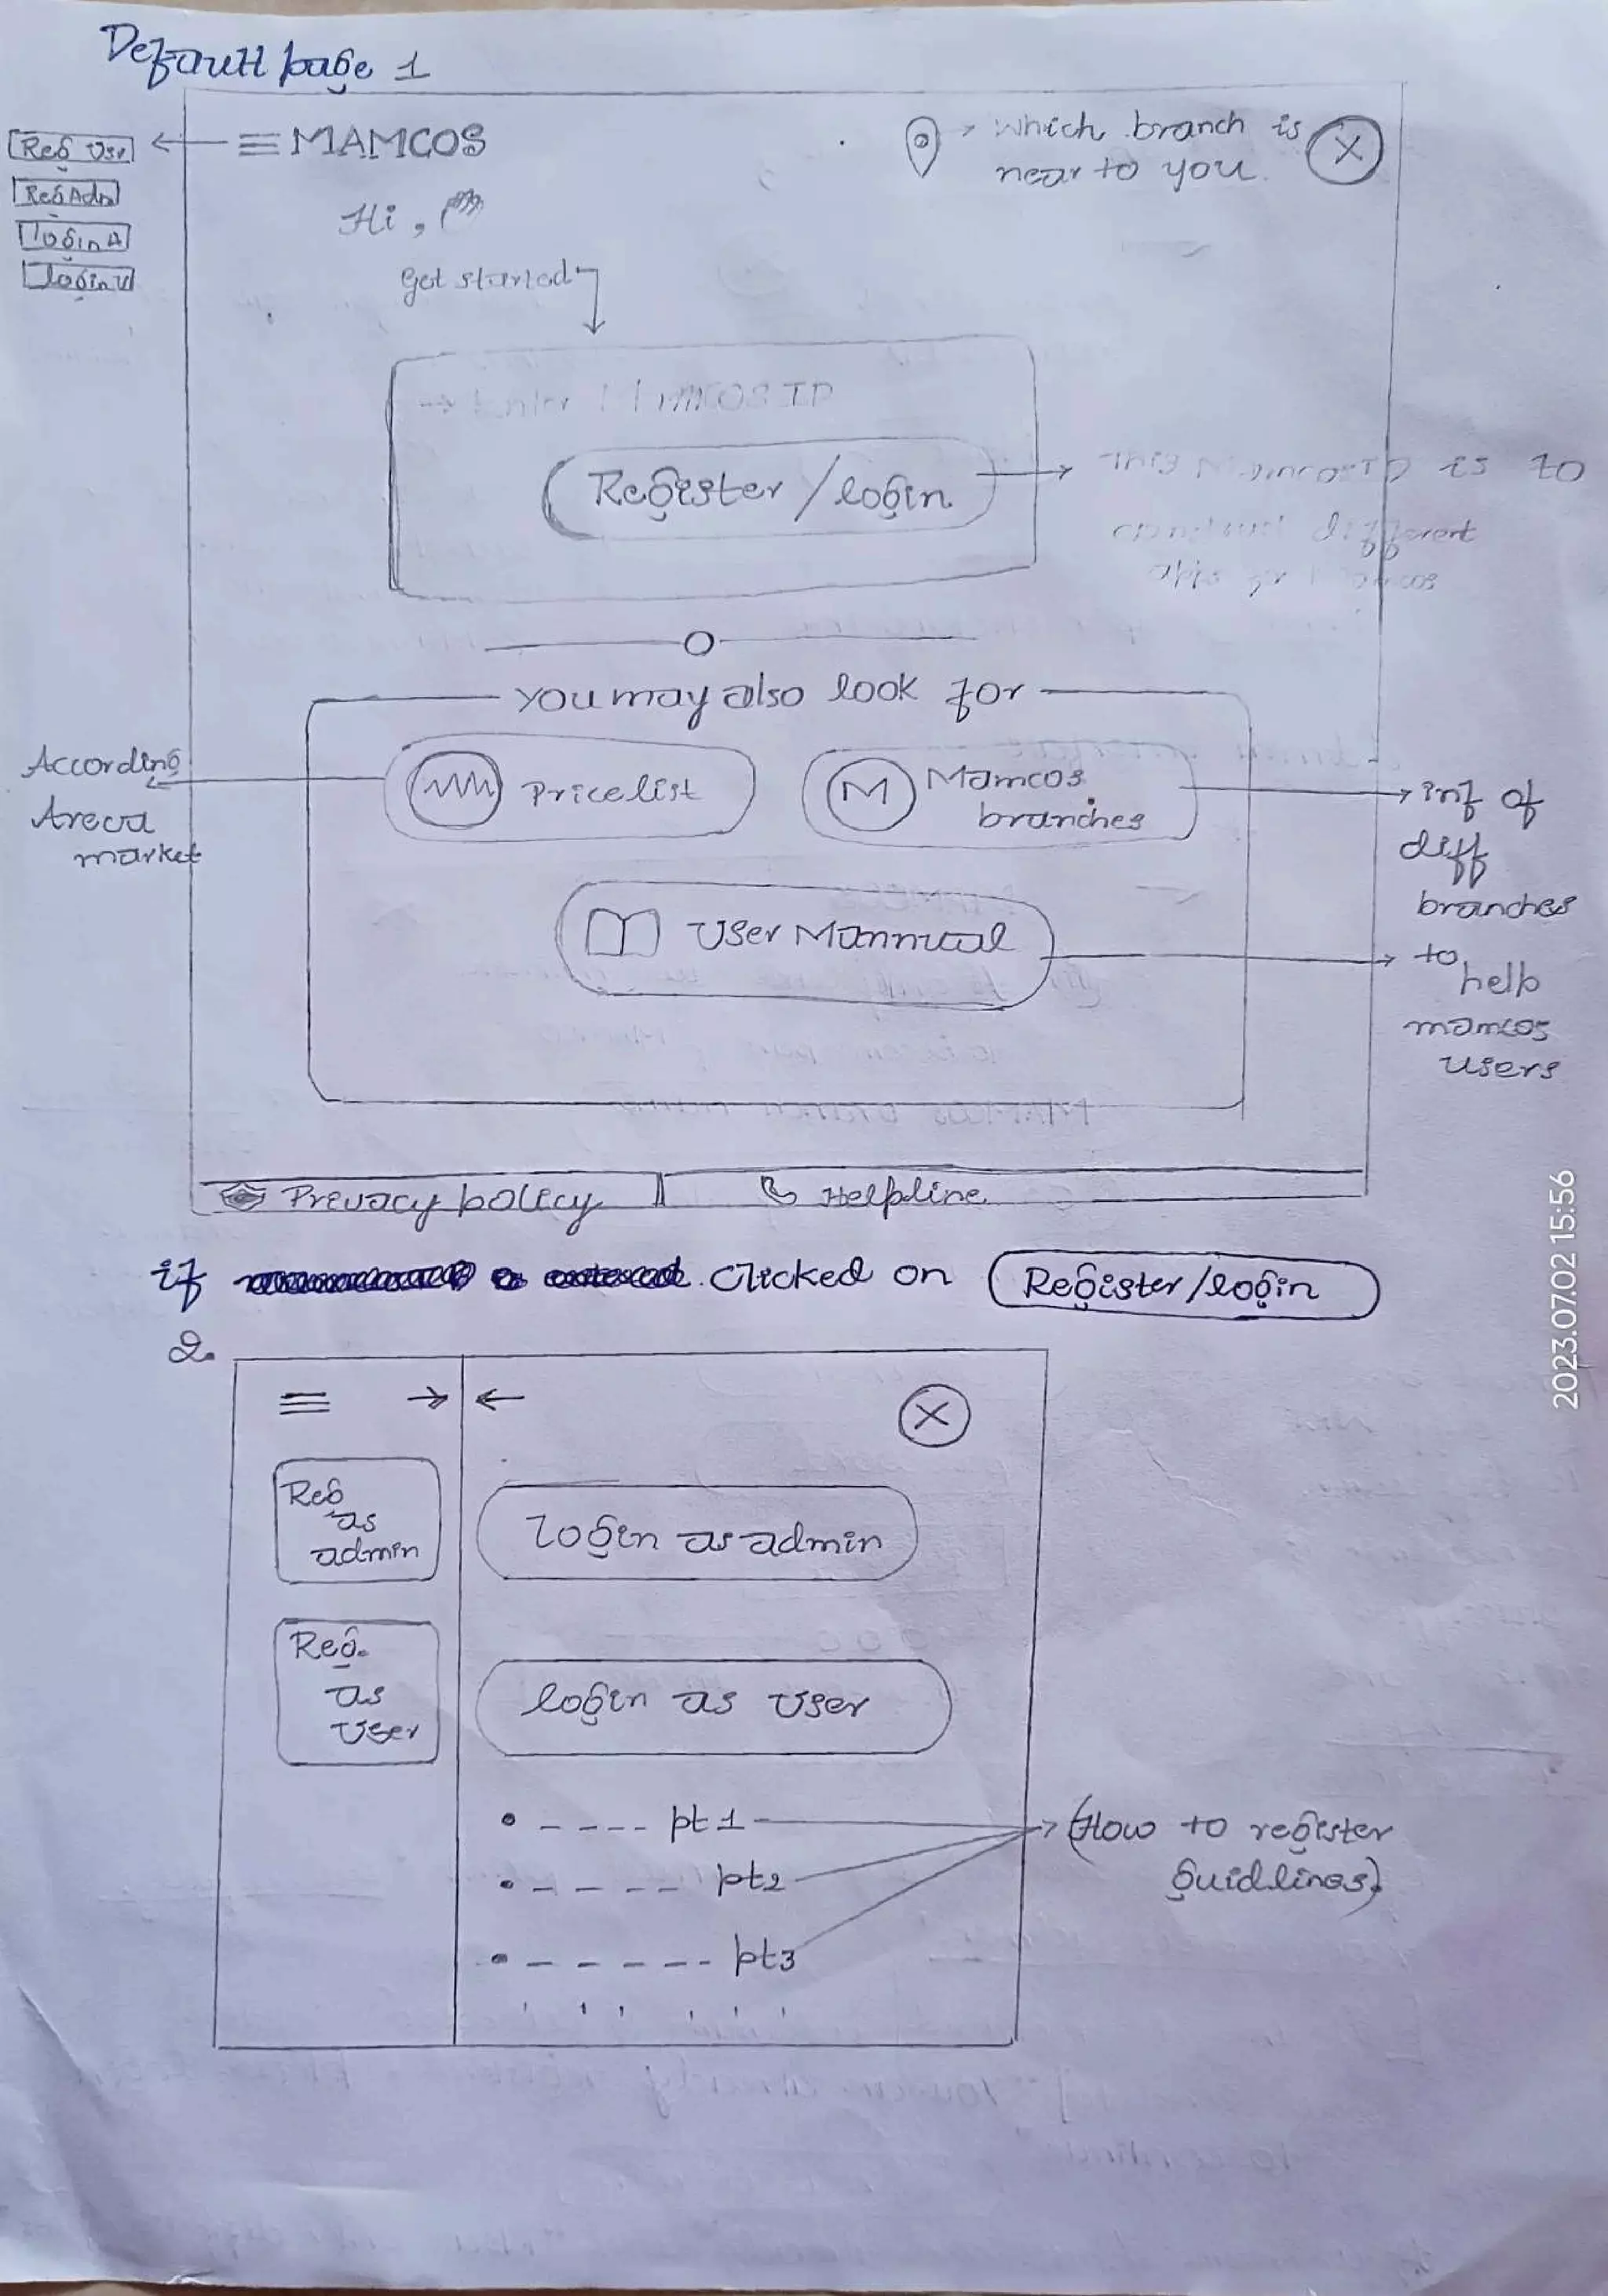 Default page 1
Reg Usr
Reg Adn
login A
login U
MAMCOS
which branch is
near to you.
X
Hi,
Get started
MAMCOS ID
Register/login
This MamcosID is to
different
Mamcos
you may also look for
According
Areca
market
Pricelist
M
Mamcos
branches
inf of
diff
branches
User Mannual
to
help
mamcos
users
Prevacy policy
Helpline
if clicked on Register/login
2.
X
Reg
as
admin
login as admin
Reg.
as
User
login as User
pt1
pt2
pt3
(How to register
guidlines)
2023.07.02 15:56